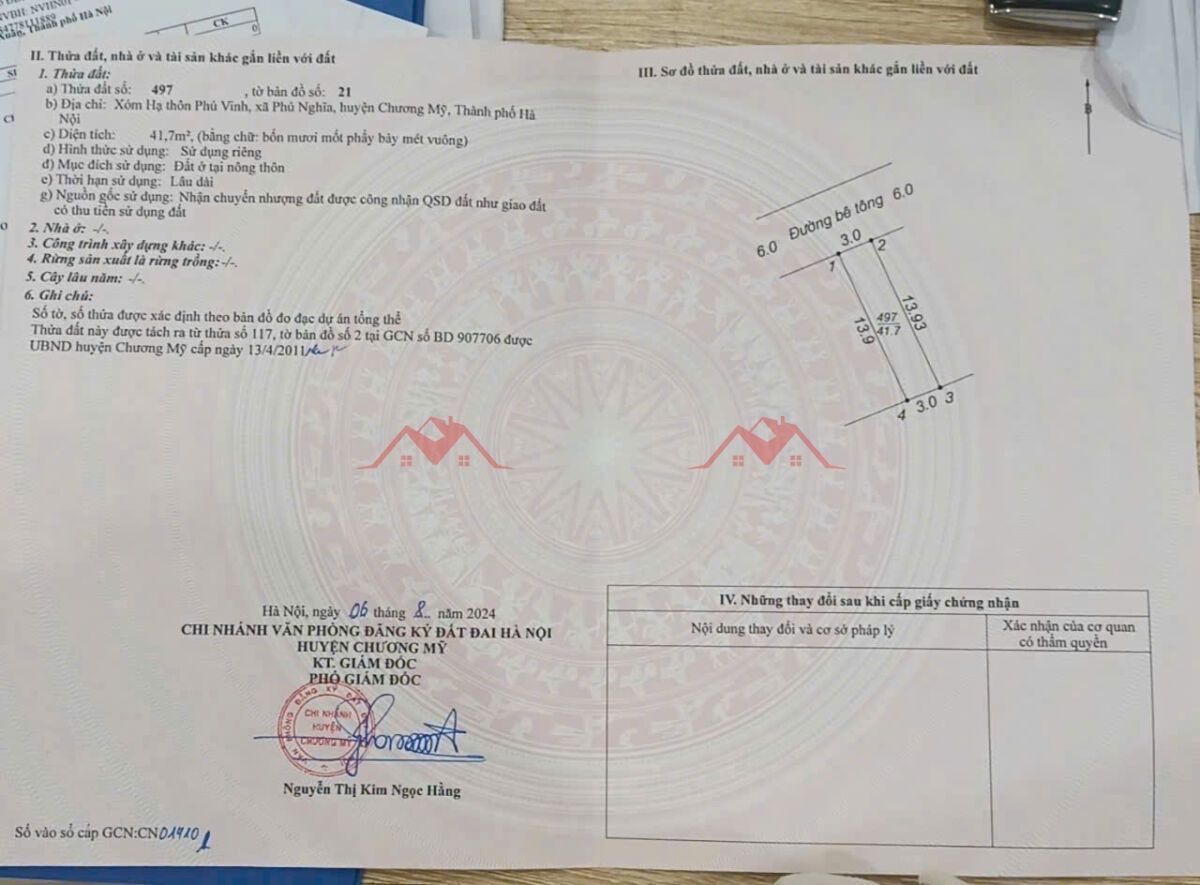 CK
0
II. Thửa đất, nhà ở và tài sản khác gắn liền với đất
1. Thửa đất:
a) Thửa đất số: 497 , tờ bản đồ số: 21
b) Địa chỉ: Xóm Hạ thôn Phú Vinh, xã Phú Nghĩa, huyện Chương Mỹ, Thành phố Hà
Nội
c) Diện tích: 41,7m², (bằng chữ: bốn mươi mốt phẩy bảy mét vuông)
d) Hình thức sử dụng: Sử dụng riêng
đ) Mục đích sử dụng: Đất ở tại nông thôn
e) Thời hạn sử dụng: Lâu dài
g) Nguồn gốc sử dụng: Nhận chuyển nhượng đất được công nhận QSD đất như giao đất
có thu tiền sử dụng đất
2. Nhà ở: -/-.
3. Công trình xây dựng khác: -/-.
4. Rừng sản xuất là rừng trồng: -/-.
5. Cây lâu năm: -/-.
6. Ghi chú:
Số tờ, số thửa được xác định theo bản đồ đo đạc dự án tổng thể
Thửa đất này được tách ra từ thửa số 117, tờ bản đồ số 2 tại GCN số BD 907706 được
UBND huyện Chương Mỹ cấp ngày 13/4/2011
Hà Nội, ngày 06 tháng 8.. năm 2024
CHI NHÁNH VĂN PHÒNG ĐĂNG KÝ ĐẤT ĐAI HÀ NỘI
HUYỆN CHƯƠNG MỸ
KT. GIÁM ĐỐC
PHÓ GIÁM ĐỐC
CHI NHÁNH
HUYỆN
CHƯƠNG MỸ
Nguyễn Thị Kim Ngọc Hằng
Số vào sổ cấp GCN:CN01410
III. Sơ đồ thửa đất, nhà ở và tài sản khác gắn liền với đất
B
6.0 Đường bê tông 6.0
3.0
1
2
13.9
497
41.7
13.93
4 3.0 3
IV. Những thay đổi sau khi cấp giấy chứng nhận
Nội dung thay đổi và cơ sở pháp lý
Xác nhận của cơ quan
có thẩm quyền